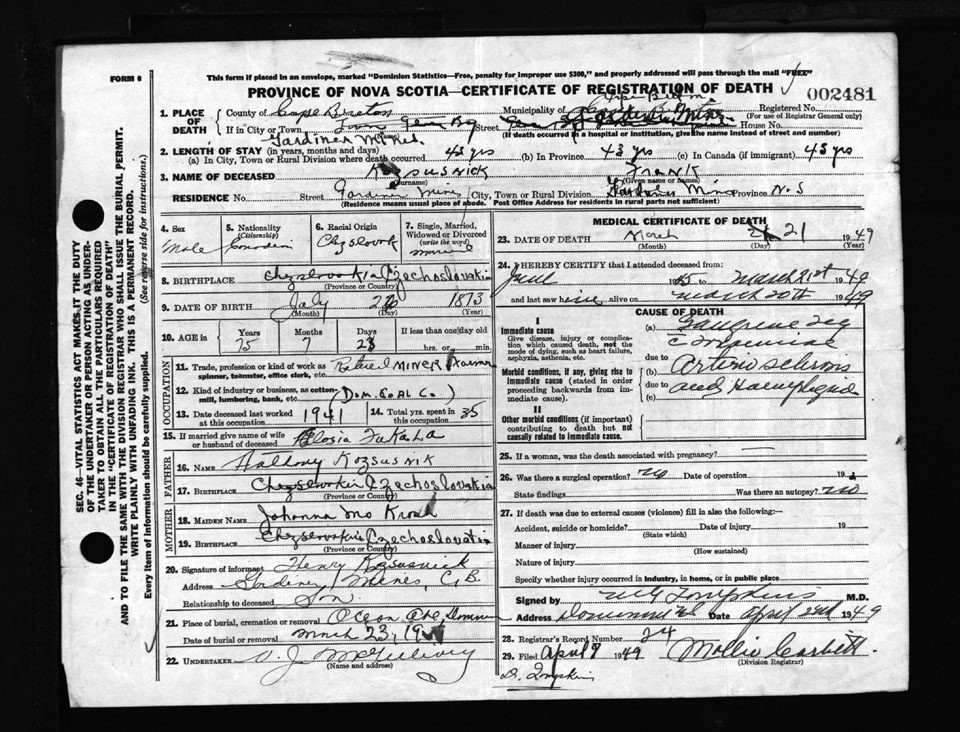 FORM 6
This form if placed in an envelope, marked "Dominion Statistics—Free, penalty for improper use $300," and properly addressed will pass through the mail "FREE"
PROVINCE OF NOVA SCOTIA—CERTIFICATE OF REGISTRATION OF DEATH
002481
1. PLACE OF DEATH
County of Cape Breton
Municipality of Cape Breton
Registered No.
(For use of Registrar General only)
If in City or Town Street House No.
(If death occurred in a hospital or institution, give the name instead of street and number)
Gardiner Mines.
2. LENGTH OF STAY (in years, months and days)
(a) In City, Town or Rural Division where death occurred 43 yrs (b) In Province 43 yrs (c) In Canada (if immigrant) 43 yrs
3. NAME OF DECEASED Kozsusnick Frank
(Surname) (Given name or names)
RESIDENCE No. Street Gardiner Mines City, Town or Rural Division Gardiner Mines Province N.S
(Residence means usual place of abode. Post Office Address for residents in rural parts not sufficient)
4. Sex
Male
5. Nationality
(Citizenship)
Canadian
6. Racial Origin
7. Single, Married, Widowed or Divorced
(write the word)
8. BIRTHPLACE Czechoslovakia
(Province or Country)
9. DATE OF BIRTH July 1873
(Month) (Day) (Year)
10. AGE Years Months Days If less than one day old
75 7 hrs. or min.
OCCUPATION
11. Trade, profession or kind of work as spinner, teamster, office clerk, etc. Retired MINER
12. Kind of industry or business, as cotton-mill, lumbering, bank, etc. (DOM. COAL CO.)
13. Date deceased last worked at this occupation 1941
14. Total yrs. spent in this occupation 35
15. If married give name of wife or husband of deceased
FATHER
16. NAME Anthony Kozsusnik
17. BIRTHPLACE Czechoslovakia
(Province or Country)
MOTHER
18. MAIDEN NAME Johanna
19. BIRTHPLACE Czechoslovakia
(Province or Country)
20. Signature of informant Henry Kozsusnick
Address Gardiner Mines, C.B.
Relationship to deceased Son.
21. Place of burial, cremation or removal
Date of burial or removal March 23, 19
22. UNDERTAKER
(Name and address)
MEDICAL CERTIFICATE OF DEATH
23. DATE OF DEATH March 21 1949
(Month) (Day) (Year)
24. I HEREBY CERTIFY that I attended deceased from
June to March 21st 1949
and last saw him alive on March 20th 1949
CAUSE OF DEATH
I
Immediate cause
Give disease, injury or complication which caused death, not the mode of dying, such as heart failure, asphyxia, asthenia, etc.
Morbid conditions, if any, giving rise to immediate cause (stated in order proceeding backwards from immediate cause).
II
Other morbid conditions (if important) contributing to death but not causally related to immediate cause.
(a) Gangrene leg
due to
(b) due to
(c)
and Haemiplegia
25. If a woman, was the death associated with pregnancy?
26. Was there a surgical operation? no Date of operation 19
State findings Was there an autopsy? no
27. If death was due to external causes (violence) fill in also the following:—
Accident, suicide or homicide? Date of injury 19
(State which)
Manner of injury
(How sustained)
Nature of injury
Specify whether injury occurred in industry, in home, or in public place
Signed by Tompkins M.D.
Address Dominion Date April 1949
28. Registrar's Record Number 24
29. Filed April 1949 Mollie Corbett.
(Division Registrar)
D. Tompkins
SEC. 46—VITAL STATISTICS ACT MAKES IT THE DUTY
OF THE UNDERTAKER OR PERSON ACTING AS UNDERTAKER
TO OBTAIN ALL THE PARTICULARS REQUIRED
IN THE "CERTIFICATE OF REGISTRATION OF DEATH"
AND TO FILE THE SAME WITH THE DIVISION REGISTRAR WHO SHALL ISSUE THE BURIAL PERMIT.
WRITE PLAINLY WITH UNFADING INK. THIS IS A PERMANENT RECORD.
Every item of information should be carefully supplied. (See reverse side for instructions.)